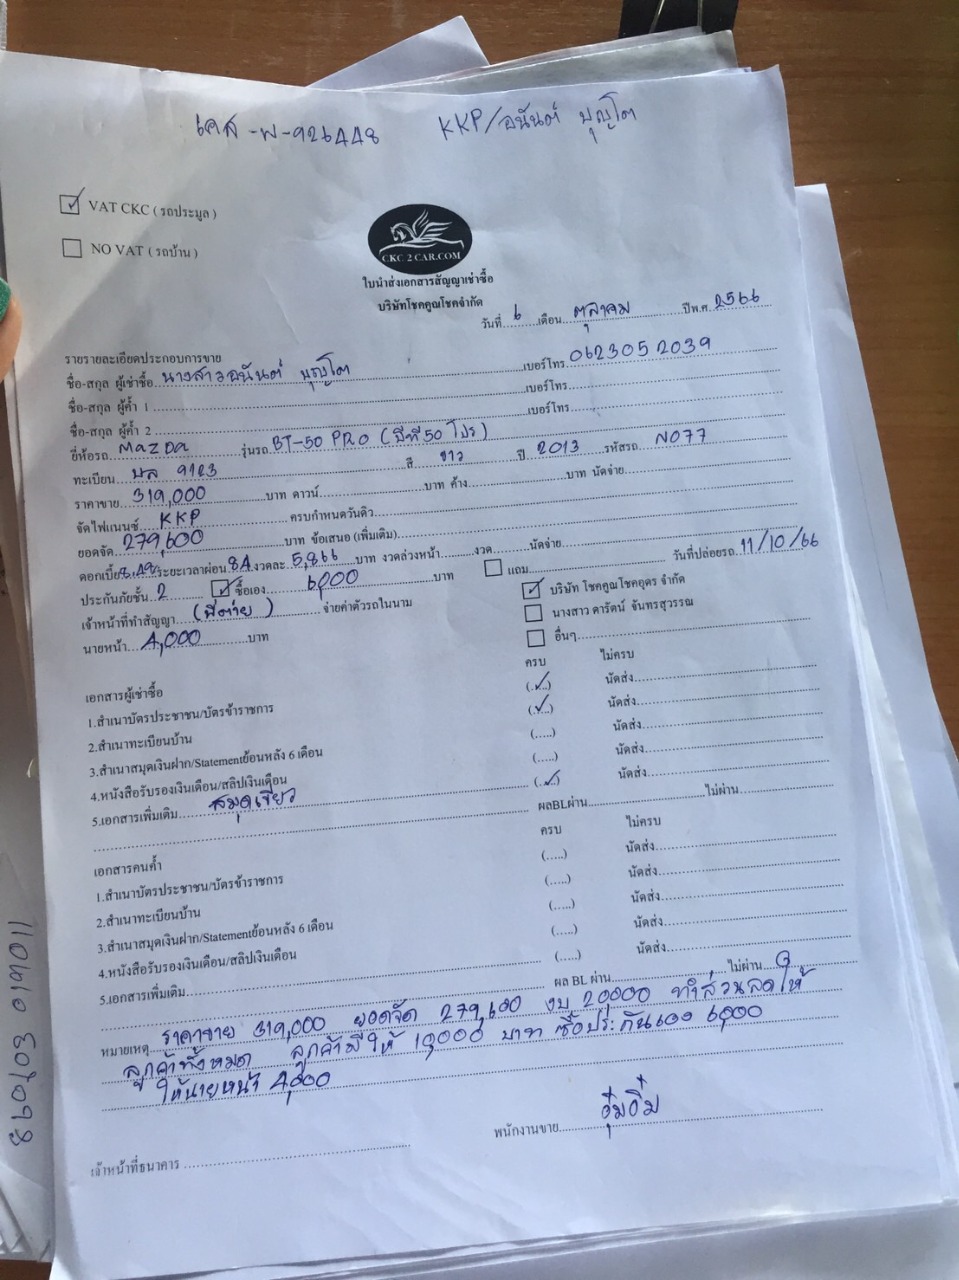 เคส -พ-926448 KKP/อนันต์ บุญโต
☑ VAT CKC ( รถประมูล )
☐ NO VAT ( รถบ้าน )
CKC 2 CAR.COM
ใบนำส่งเอกสารสัญญาเช่าซื้อ
บริษัทโชคคูณโชคจำกัด
วันที่ 6 เดือน ตุลาคม ปีพ.ศ. 2566
รายรายละเอียดประกอบการขาย
ชื่อ-สกุล ผู้เช่าซื้อ นางสาวอนันต์ บุญโต เบอร์โทร 0623052039
ชื่อ-สกุล ผู้ค้ำ 1 เบอร์โทร
ชื่อ-สกุล ผู้ค้ำ 2 เบอร์โทร
ยี่ห้อรถ Mazda รุ่นรถ BT-50 PRO (บีที50 โปร)
ทะเบียน บล 9123 สี ขาว ปี 2013 รหัสรถ N077
ราคาขาย 319,000 บาท ดาวน์ บาท ค้าง บาท นัดจ่าย
จัดไฟแนนซ์ KKP ครบกำหนดวันคิว
ยอดจัด 279,600 บาท ข้อเสนอ (เพิ่มเติม)
ดอกเบี้ย 8.49 ระยะเวลาผ่อน 84 งวดละ 5,866 บาท งวดล่วงหน้า งวด นัดจ่าย
ประกันภัยชั้น 2 ☑ ซื้อเอง 6,000 บาท ☐ แถม วันที่ปล่อยรถ 11/10/66
เจ้าหน้าที่ทำสัญญา (พี่ต่าย) จ่ายค่าตัวรถในนาม ☑ บริษัท โชคคูณโชคอุดร จำกัด
นายหน้า 4,000 บาท ☐ นางสาว ดารัตน์ จันทรสุวรรณ
☐ อื่นๆ
เอกสารผู้เช่าซื้อ ครบ ไม่ครบ
1.สำเนาบัตรประชาชน/บัตรข้าราชการ (✓) นัดส่ง
2.สำเนาทะเบียนบ้าน (✓) นัดส่ง
3.สำเนาสมุดเงินฝาก/Statementย้อนหลัง 6 เดือน (.....) นัดส่ง
4.หนังสือรับรองเงินเดือน/สลิปเงินเดือน (.....) นัดส่ง
5.เอกสารเพิ่มเติม สมุดเขียว (✓) นัดส่ง
ผลBLผ่าน ไม่ผ่าน
เอกสารคนค้ำ ครบ ไม่ครบ
1.สำเนาบัตรประชาชน/บัตรข้าราชการ (.....) นัดส่ง
2.สำเนาทะเบียนบ้าน (.....) นัดส่ง
3.สำเนาสมุดเงินฝาก/Statementย้อนหลัง 6 เดือน (.....) นัดส่ง
4.หนังสือรับรองเงินเดือน/สลิปเงินเดือน (.....) นัดส่ง
5.เอกสารเพิ่มเติม (.....) นัดส่ง
ผล BL ผ่าน ไม่ผ่าน
หมายเหตุ ราคาขาย 319,000 ยอดจัด 279,600 งบ 20,000 ทำส่วนลดให้
ลูกค้าทั้งหมด ลูกค้ามีให้ 10,000 บาท ซื้อประกันเอง 6,000
ให้นายหน้า 4,000
พนักงานขาย อุ๋มอิ๋ม
เจ้าหน้าที่ธนาคาร